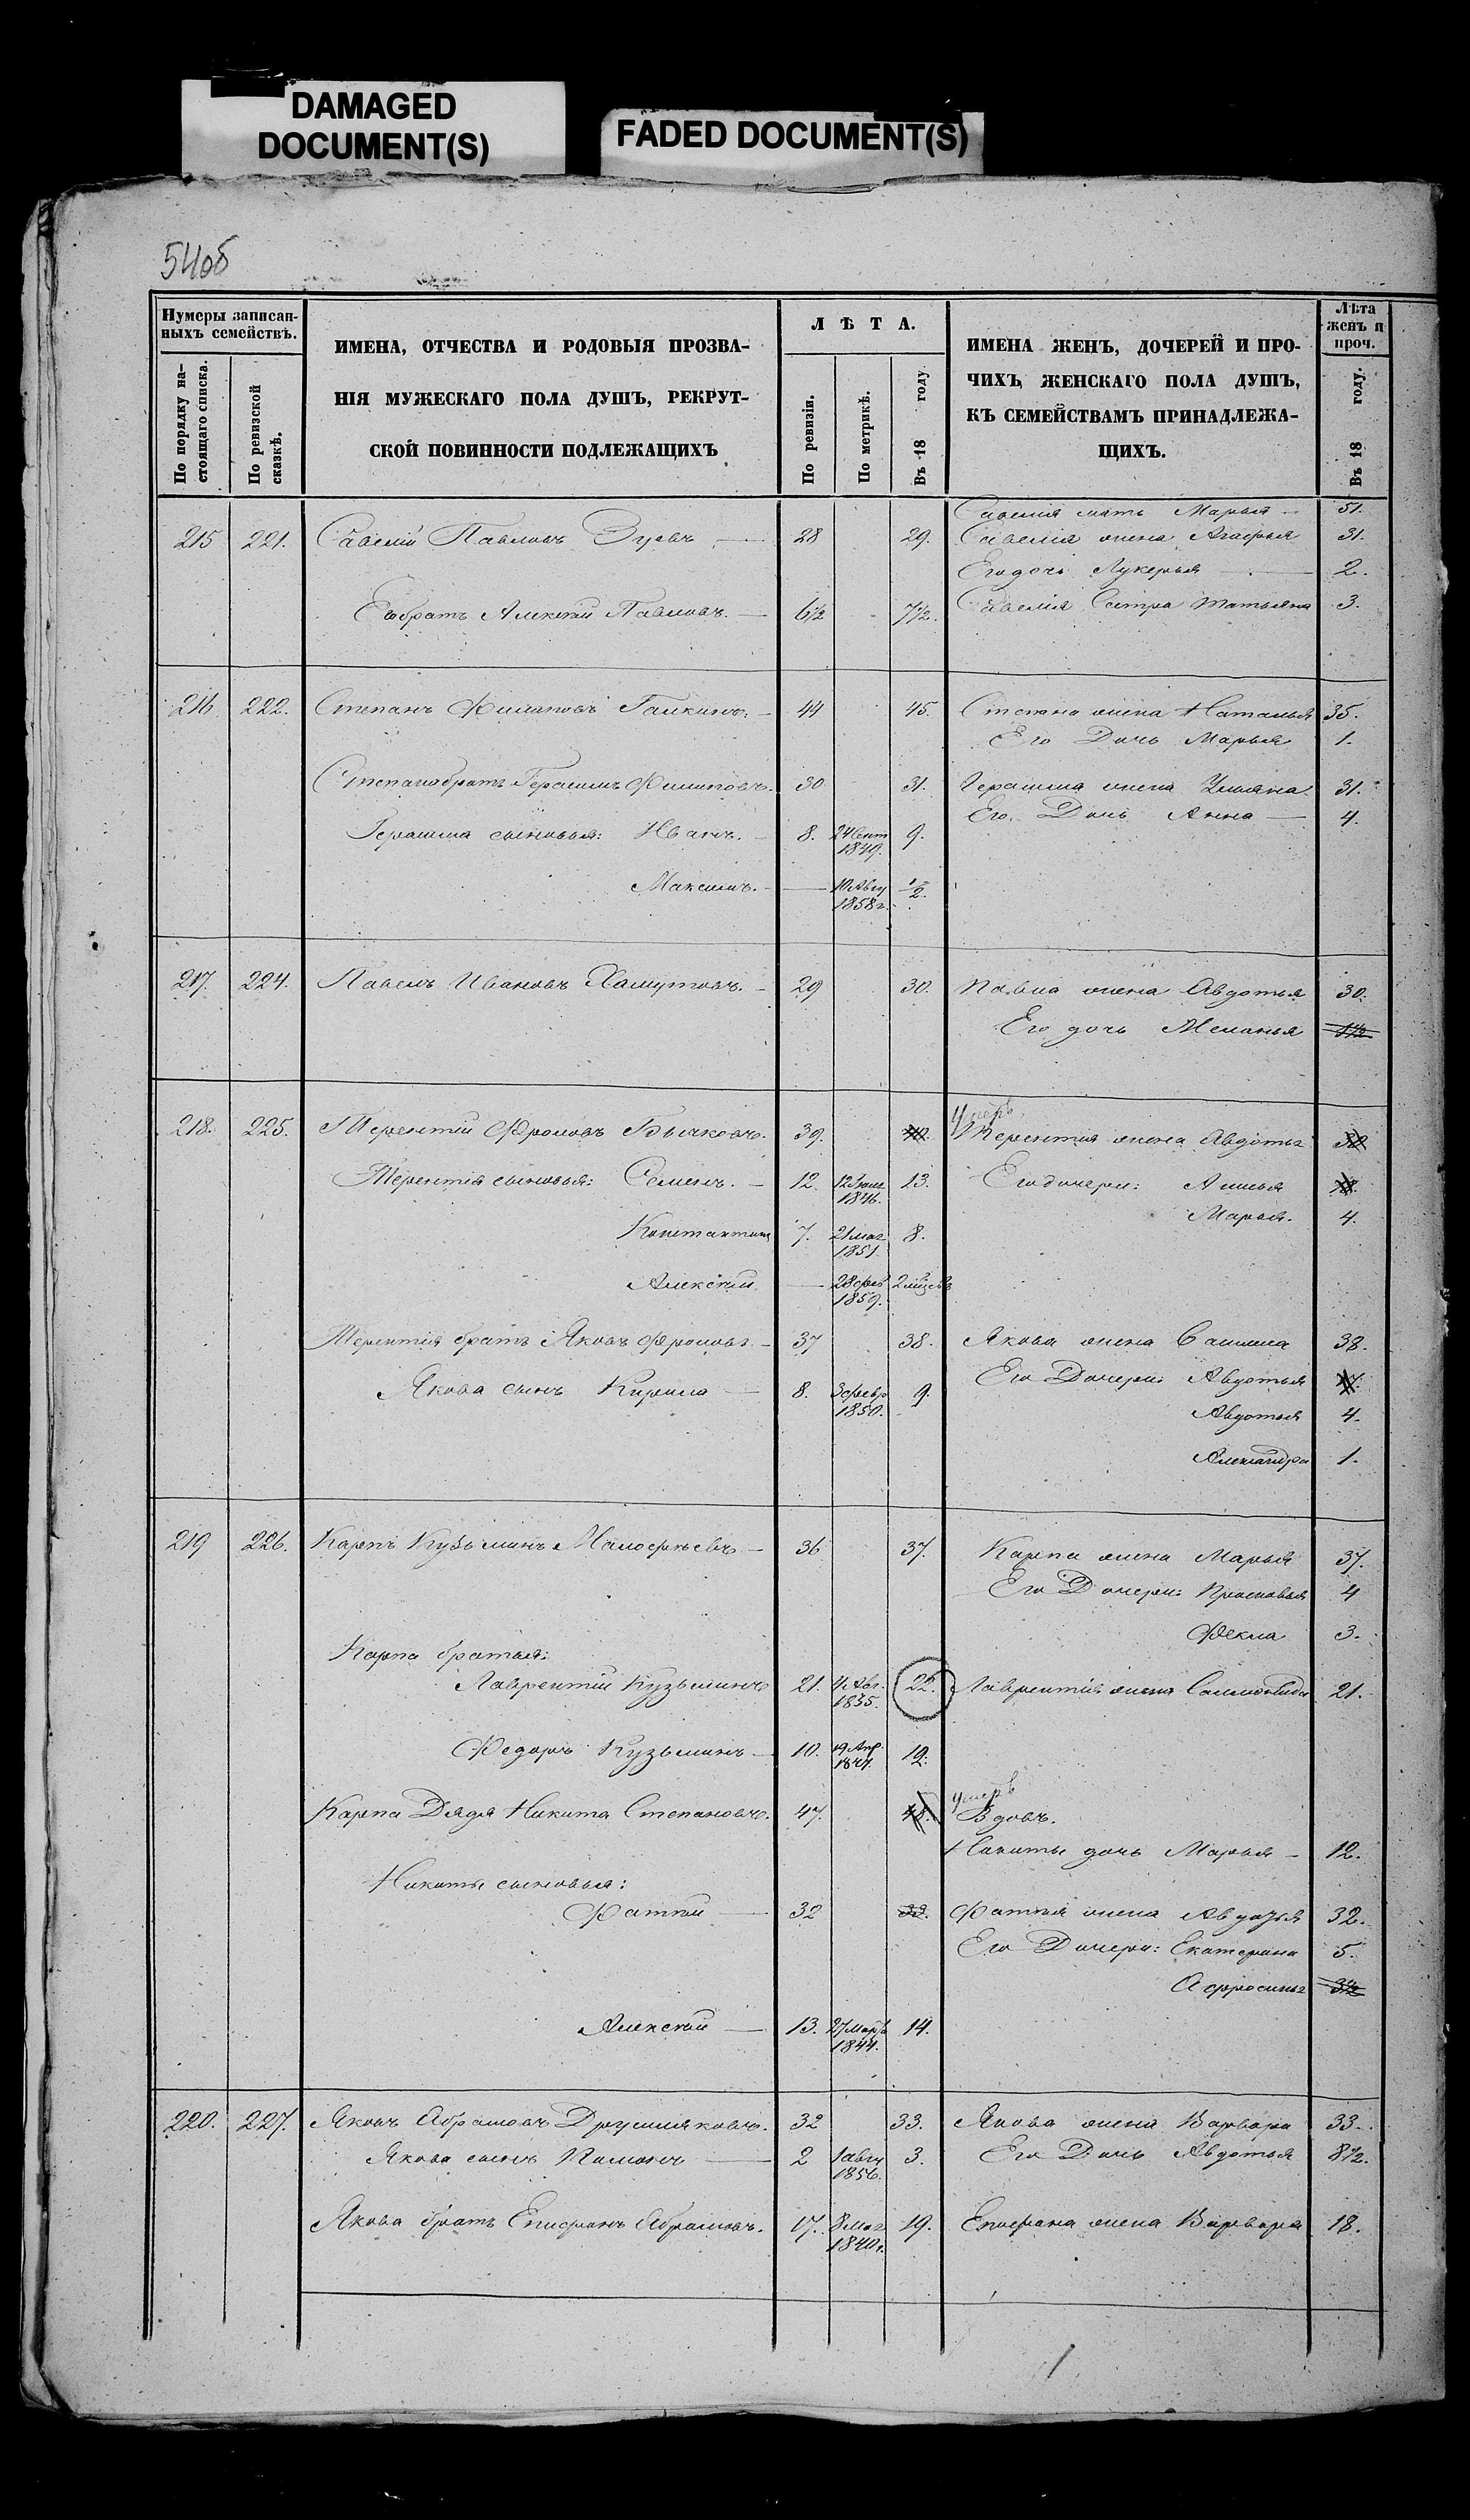 DAMAGED
DOCUMENT(S)
FADED DOCUMENT(S)
54об
Нумеры записан-
ныхъ семействъ.
По порядку на-
стоящаго списка.
По ревизской
сказкѣ.
ИМЕНА, ОТЧЕСТВА И РОДОВЫЯ ПРОЗВА-
НІЯ МУЖЕСКАГО ПОЛА ДУШЪ, РЕКРУТ-
СКОЙ ПОВИННОСТИ ПОДЛЕЖАЩИХЪ
ЛѢТА.
По ревизіи.
По метрикѣ.
Въ 18 году
ИМЕНА ЖЕНЪ, ДОЧЕРЕЙ И ПРО-
ЧИХЪ ЖЕНСКАГО ПОЛА ДУШЪ,
КЪ СЕМЕЙСТВАМЪ ПРИНАДЛЕЖА-
ЩИХЪ.
Лѣта
женъ и
проч.
Въ 18 году.
Савелія мать Марья 51.
215 221. Савелій Павловъ Зуевъ 28 29. Савелія жена Агафья 31.
Его дочь Лукерья 2.
Его братъ Алексѣй Павловъ. 6½ 7½. Савелія Сестра Татьяна 3.
216 222. Степанъ Филиповъ Галкинъ. 44 45. Степана жена Наталья 35.
Его Дочь Марья 1.
Степана братъ Герасимъ Филиповъ. 30 31. Герасима жена Ульяна 31.
Его Дочь Анна 4.
Герасима сыновья: Иванъ. 8. 24 Сент 1849. 9.
Максимъ. 10 Авгу 1858 г. ½.
217. 224. Павелъ Ивановъ Хамутовъ. 29 30. Павла жена Авдотья 30.
Его дочь Меланья 1½
218. 225. Терентій Фроловъ Бычковъ. 39. 40. Умеръ. Терентія жена Авдотья
Терентія сыновья: Семенъ. 12. 1846. 13. Его дочери:
Марья. 4.
Константинъ 7. 21 мая 1851. 8.
Алексѣй 28 фев 1859. 2 мѣсев
Терентія братъ Яковъ Фроловъ 37 38. Якова жена 38.
Якова сынъ Кирила 8. 3 февр 1850. 9. Его Дочери: Авдотья
Авдотья 4.
Александра 1.
219 226. Карпъ Кузьминъ 36 37. Карпа жена Марья 37.
Его Дочери: Прасковья 4
Фекла 3.
Карпа братья:
Лаврентій Кузьминъ 21. 4 Авг. 1835. 22. Лаврентія жена 21.
Федоръ Кузьминъ 10. 19 Апр. 1847. 12.
Карпа Дядя Никита Степановъ. 47. 48. умеръ Вдовъ.
Никиты дочь Марья 12.
Никиты сыновья:
Фатѣй 32 33. Фатѣя жена Авдотья 32.
Его Дочери: Екатерина 5.
Афросинья
Алексѣй 13. 27 Марта 1844. 14.
220. 227. Яковъ Абрамовъ 32 33. Якова жена Варвара 33.
Якова сынъ 2 1 авгу 1856. 3. Его Дочь Авдотья 8½.
Якова братъ Епифанъ Абрамовъ. 17. 8 мая 1840 г. 19. Епифана жена Варвара 18.